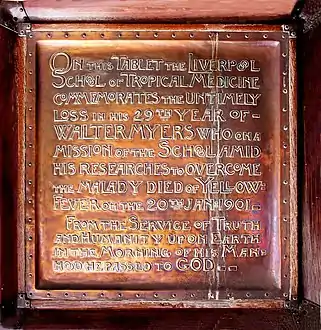 ON THIS TABLET THE LIVERPOOL
SCHOOL OF TROPICAL MEDICINE
COMMEMORATES THE UNTIMELY
LOSS IN HIS 29TH YEAR OF -
WALTER MYERS WHO ON A
MISSION OF THE SCHOOL AMID
HIS RESEARCHES TO OVERCOME
THE MALADY DIED OF YELLOW-
FEVER ON THE 20TH JAN. 1901 -
FROM THE SERVICE OF TRUTH
AND HUMANITY UPON EARTH
IN THE MORNING OF HIS MAN-
HOOD HE PASSED TO GOD. - -